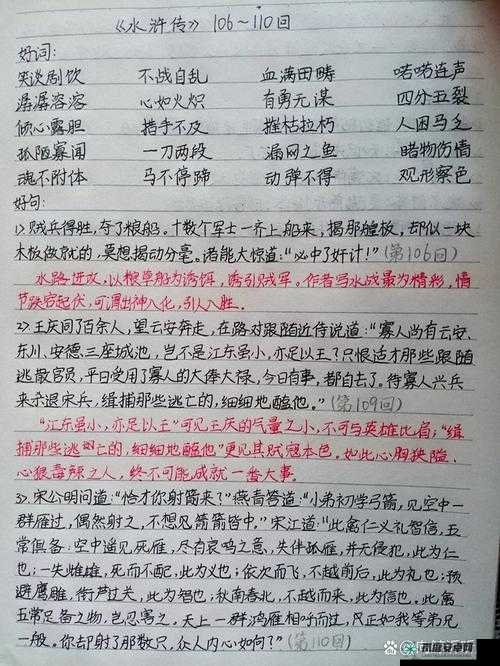 《水浒传》 106~110回
好词:
笑谈剧饮 不战自乱 血满田畴 喏喏连声
潺潺溶溶 心如火炽 有勇无谋 四分五裂
倾心露胆 措手不及 摧枯拉朽 人困马乏
孤陋寡闻 一刀两段 漏网之鱼 睹物伤情
魂不附体 马不停蹄 动弹不得 观形察色
好句:
1》贼兵得胜,夺了粮船。十数个军士一齐上船来,揭那艎板,却似一块
木板做就的,莫想揭动分毫。诸能大惊道:“必中了奸计!”(第106回)
水路进攻,以粮草船为诱饵,诱引贼军。作者写水战最为精彩,情
节跌宕起伏,可谓出神入化,引人入胜。
2》王庆同了百余人,望云安奔走,在路对跟随近侍说道:“寡人尚有云安、
东川、安德三座城池,岂不是江东虽小,亦足以王?只恨适才那些跟随
逃散官员,平日受用了寡人的大俸大禄,今日有事,都自去了。待寡人兴兵
来杀退宋兵,缉捕那些逃亡的,细细地醢他。”(第109回)
“江东虽小,亦足以王”可见王庆的气量之小,不可与英雄比肩;“缉
捕那些逃亡的,细细地醢他”更见其贼寇本色。如此心胸狭隘、
心狠毒辣之人,终不可能成就一番大事。
3》宋公明问道:“恰才你射箭来?”燕青答道:“小弟初学弓箭,见空中一
群雁过,偶然射之,不想见箭箭皆中。”宋江道:“此禽仁义礼智信,五
常俱备:空中遥见死雁,尽有哀鸣之意,失伴孤雁,并无侵犯,此为仁
也;一失雌雄,死而不配,此为义也;依次而飞,不越前后,此为礼也;预
避鹰雕,衔芦过关,此为智也;秋南春北,不越而来,此为信也。此禽
五常足备之物,岂忍害之。天上一群鸿雁相呼而过,只正如我等弟兄
一般。你却射了那数只,众人内心如何?”(第110回)